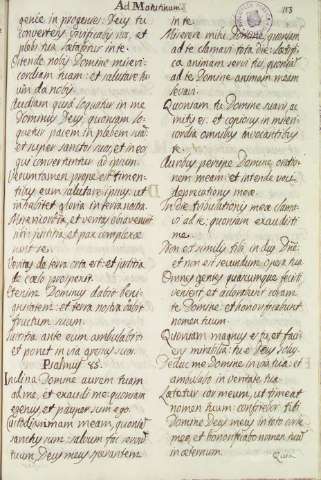 Ad Matutinum
113
genie in progenies. Deus tu
convertens vivificabis nos, et
plebs tua lætabitur in te.
Ostende nobis Domine miseri-
cordiam tuam: et salutare tu-
um da nobis.
Audiam quid loquatur in me
Dominus Deus: quoniam lo-
quetur pacem in plebem suã.
Et super sanctos suos, et in eos
qui convertuntur ad ipsum.
Verumtamen prope est timen-
tibus eum salutare ipsius: ut
inhabitet gloria in terra nostra.
Misericordia, et veritas obviaverunt
sibi: justitia, et pax complexæ
sunt se.
Veritas de terra orta est: et justitia
de cœlo prospexit.
Etenim Dominus dabit beni-
gnitatem: et terra nostra dabit
fructum suum.
Justitia ante eum ambulabit:
et ponet in via gressus suos.
Psalmus 85.
Inclina Domine aurem tuam
ad me, et exaudi me: quoniam
egenus, et pauper sum ego.
Custodi animam meam, quoniã
sanctus sum: salvum fac servũ
tuum, Deus meus, sperantem
in te.
Miserere mihi Domine, quoniam
ad te clamavi tota die: lætifi-
ca animam servi tui, quoniã
ad te Domine animam meam
levavi.
Quoniam tu Domine suavis, ac
mitis es: et copiosus in miseri-
cordia omnibus invocantibus
te.
Auribus percipe Domine, oratio-
nem meam: et intende voci
deprecationis meæ.
In die tribulationis meæ clama-
vi ad te: quoniam exaudisti
me.
Non est similis tibi in diis Dñe:
et non est secundum opera tua.
Omnes gentes quascumque fecisti,
venient, et adorabunt coram
te Domine: et glorificabunt
nomen tuum.
Quoniam magnus es tu, et faci-
ens mirabilia: tu es Deus solus.
Deduc me Domine in via tua, et
ambulabo in veritate tua.
Lætetur cor meum, ut timeat
nomen tuum: confitebor tibi
Domine Deus meus in toto corde
meo, et glorificabo nomen tuũ
in æternum.
Quia